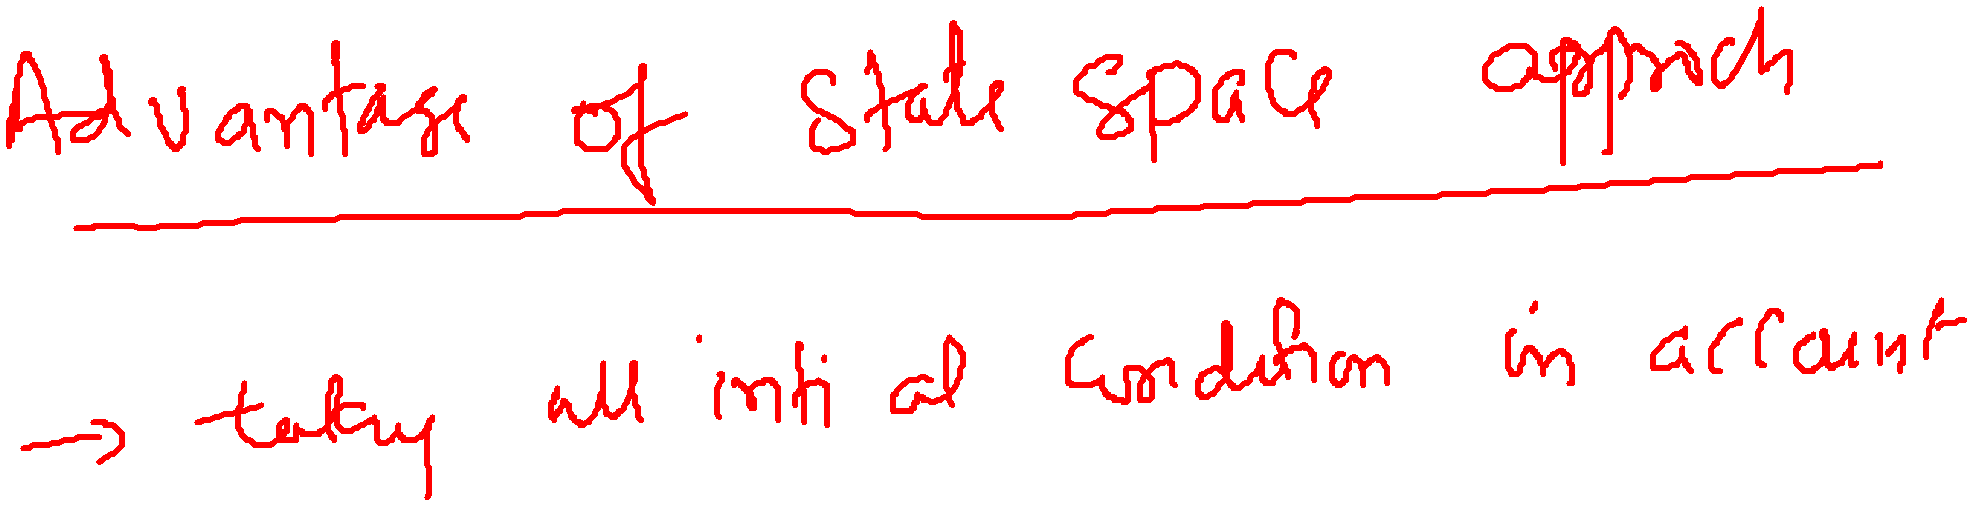 Advantage of State Space approch
→ taking all intial Condition in account